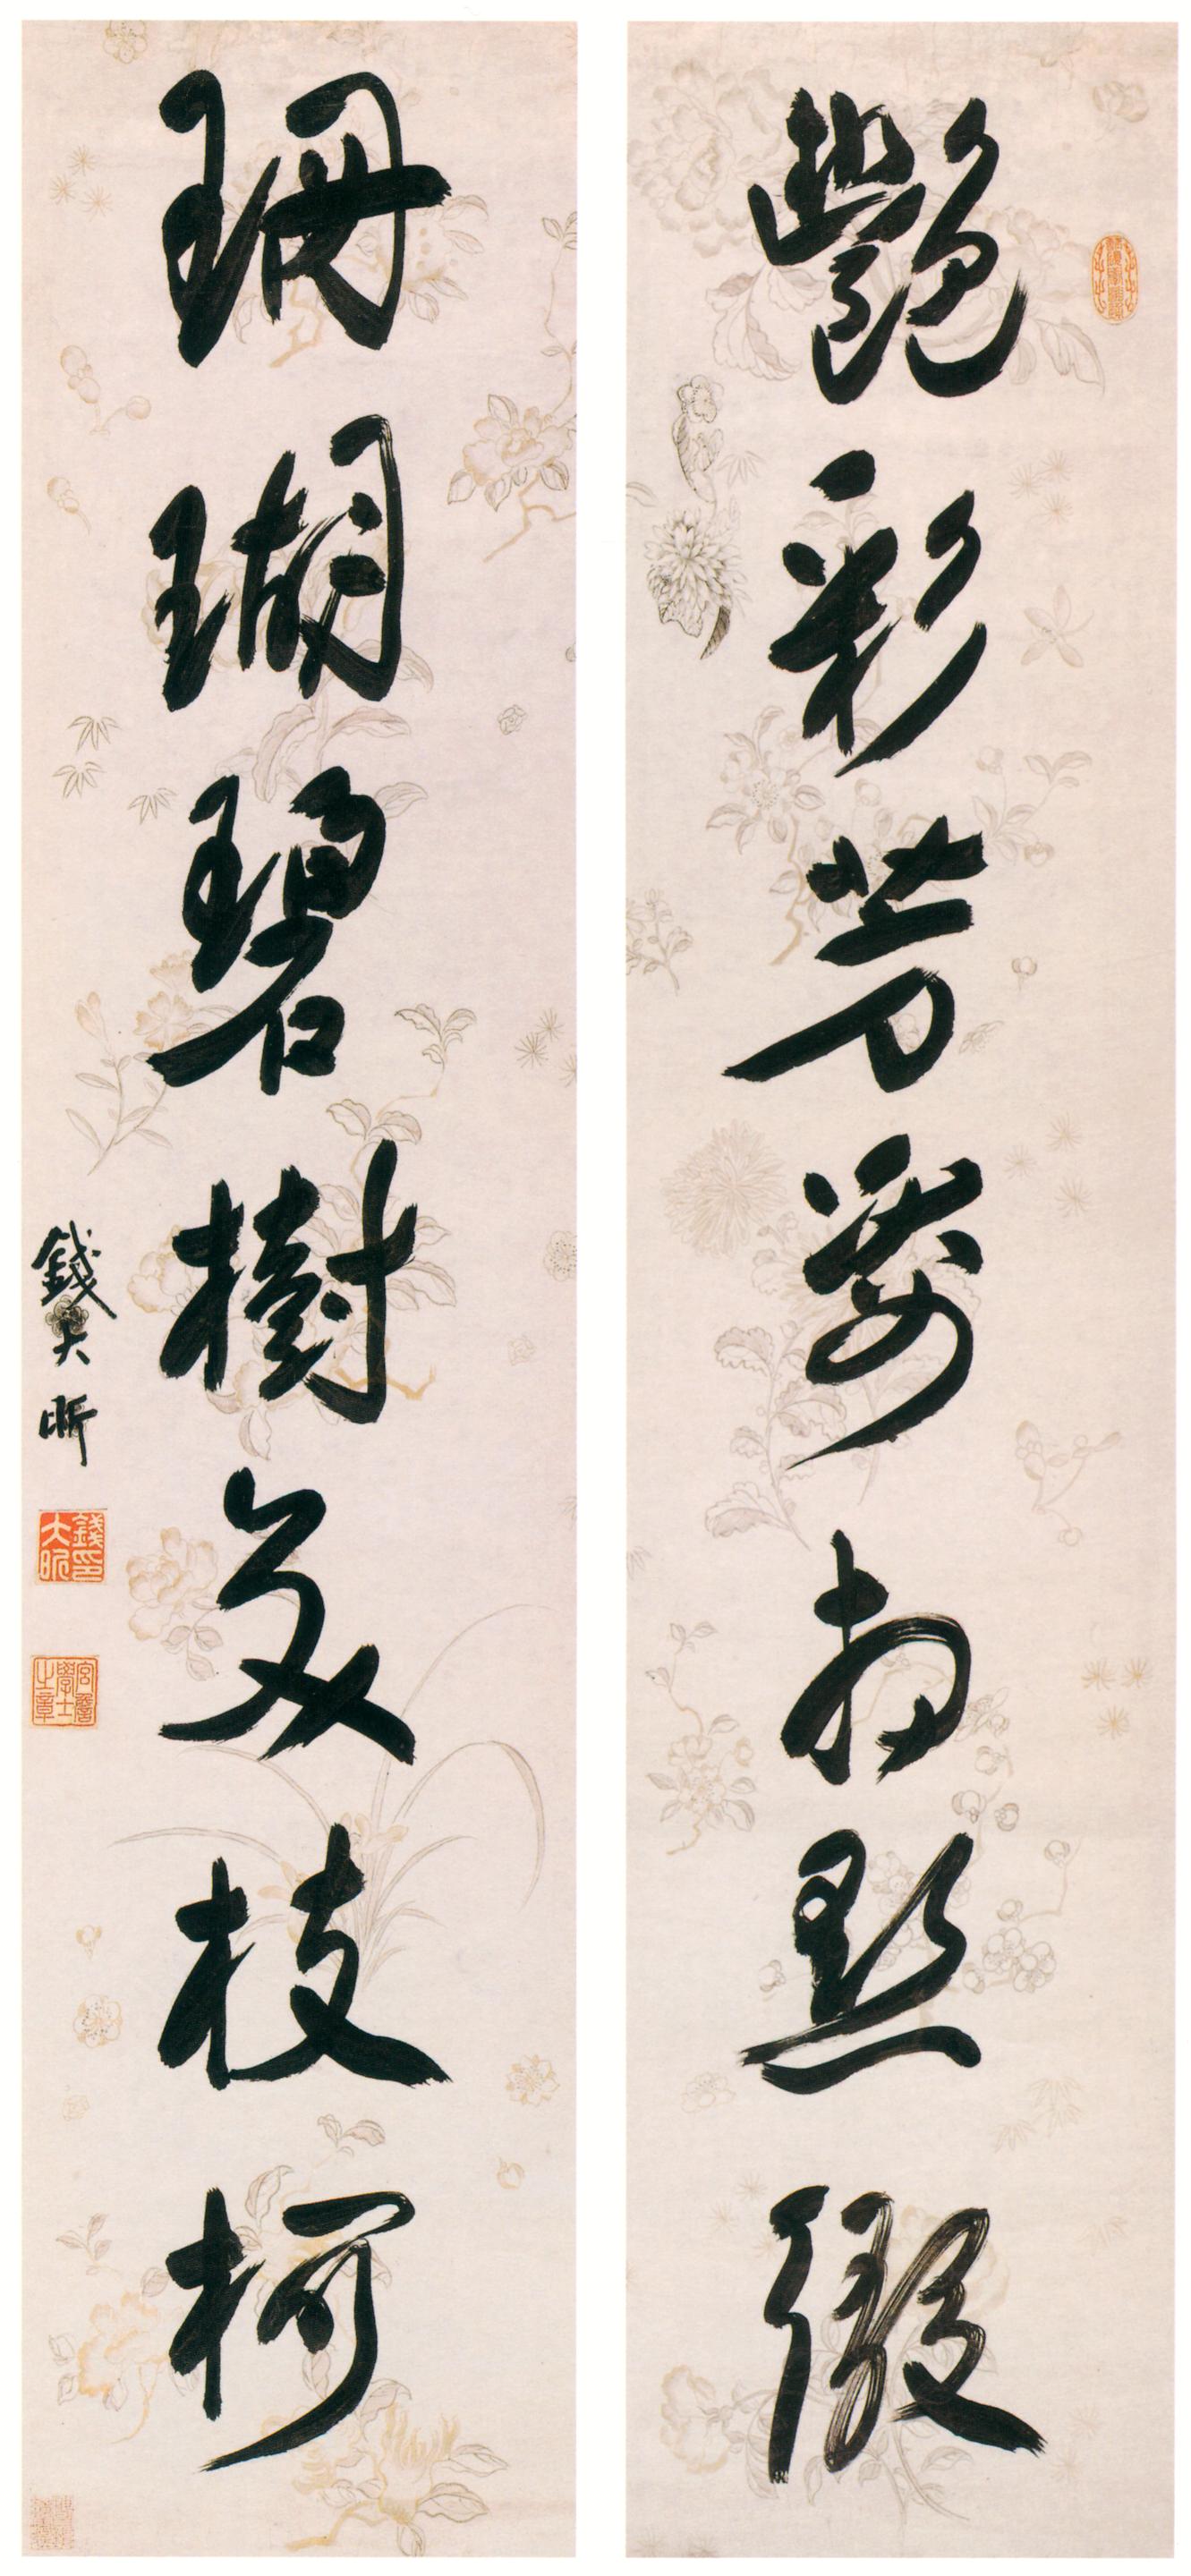 艷彩芳姿相點綴
珊瑚碧樹交枝柯
錢大昕
錢印大昕
宮詹學士之章